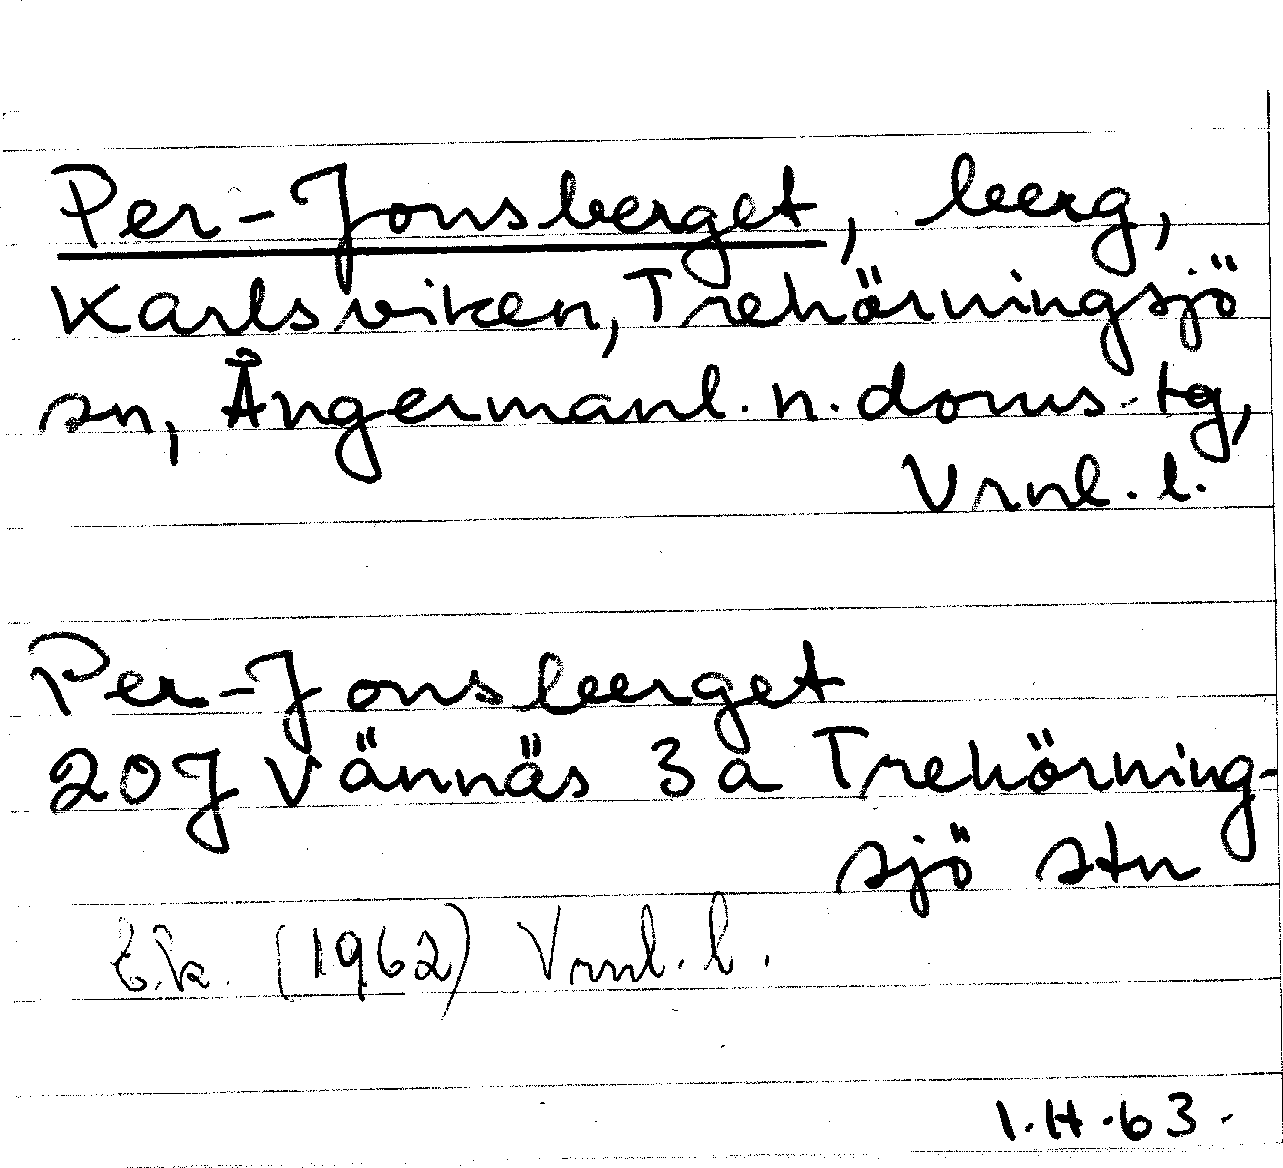 Per-Jonsberget, berg,
Karlsviken, Trehörningsjö
sn, Ångermanl. n. doms. tg,
Vrnl. l.
Per-Jonsberget
20J Vännäs 3a Trehörning-
sjö stn
E.k. (1962) Vrnl. l.
I.H.63.